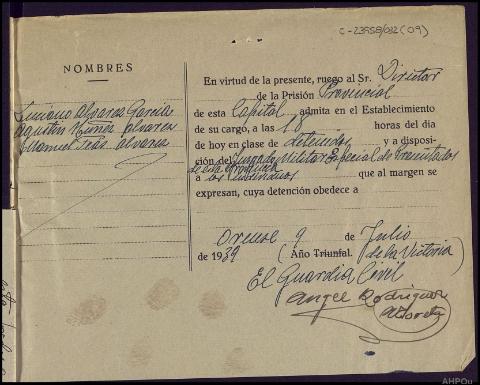 C-23958/032 (09)
NOMBRES
Luciano Alvarez Garcia
Agustin Nuñez Alvarez
Manuel Seas Alvarez
En virtud de la presente, ruego al Sr. Director
de la Prisión Provincial
de esta Capital admita en el Establecimiento
de su cargo, a las 18 horas del día
de hoy en clase de detenidos y a disposi-
ción del Juzgado Militar Especial de Presentados
de esta Provincia
a los individuos que al margen se
expresan, cuya detención obedece a
Orense 9 de Julio
de 1939 (Año Triunfal. de la Victoria)
El Guardia Civil
Angel Rodriguez
AHPOu